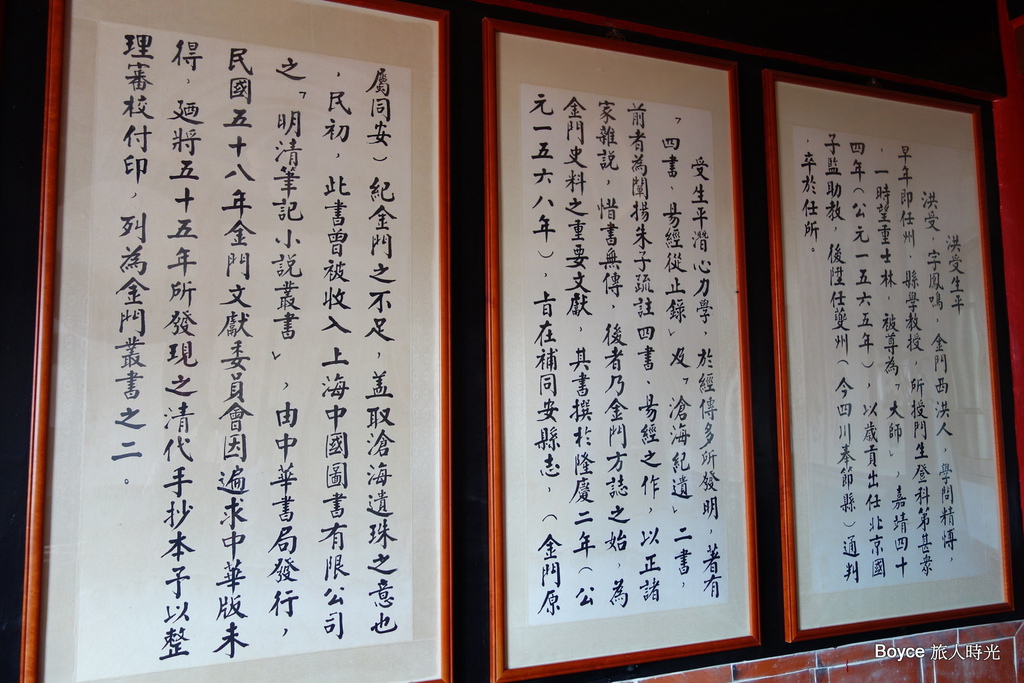 洪受生平
洪受，字鳳鳴，金門西洪人，學問精慱，
早年即任州、縣學教授，所授門生登科第甚衆
，一時望重士林，被尊為「大師」，嘉靖四十
四年（公元一五六五年），以歲貢出任北京國
子監助教，後陞任夔州（今四川奉節縣）通判
，卒於任所。
受生平潛心力學，於經傳多所發明，著有
「四書、易經從正錄」及「滄海紀遺」二書，
前者為闡揚朱子疏註四書、易經之作，以正諸
家雜説，惜書無傳，後者乃金門方誌之始，為
金門史料之重要文獻，其書撰於隆慶二年（公
元一五六八年），旨在補同安縣志，（金門原
屬同安）紀金門之不足，盖取滄海遺珠之意也
，民初，此書曾被收入上海中國圖書有限公司
之「明清筆記小說叢書」，由中華書局發行，
民國五十八年金門文獻委員會因遍求中華版未
得，廼將五十五年所發現之清代手抄本予以整
理審校付印，列為金門叢書之二。
Boyce 旅人時光